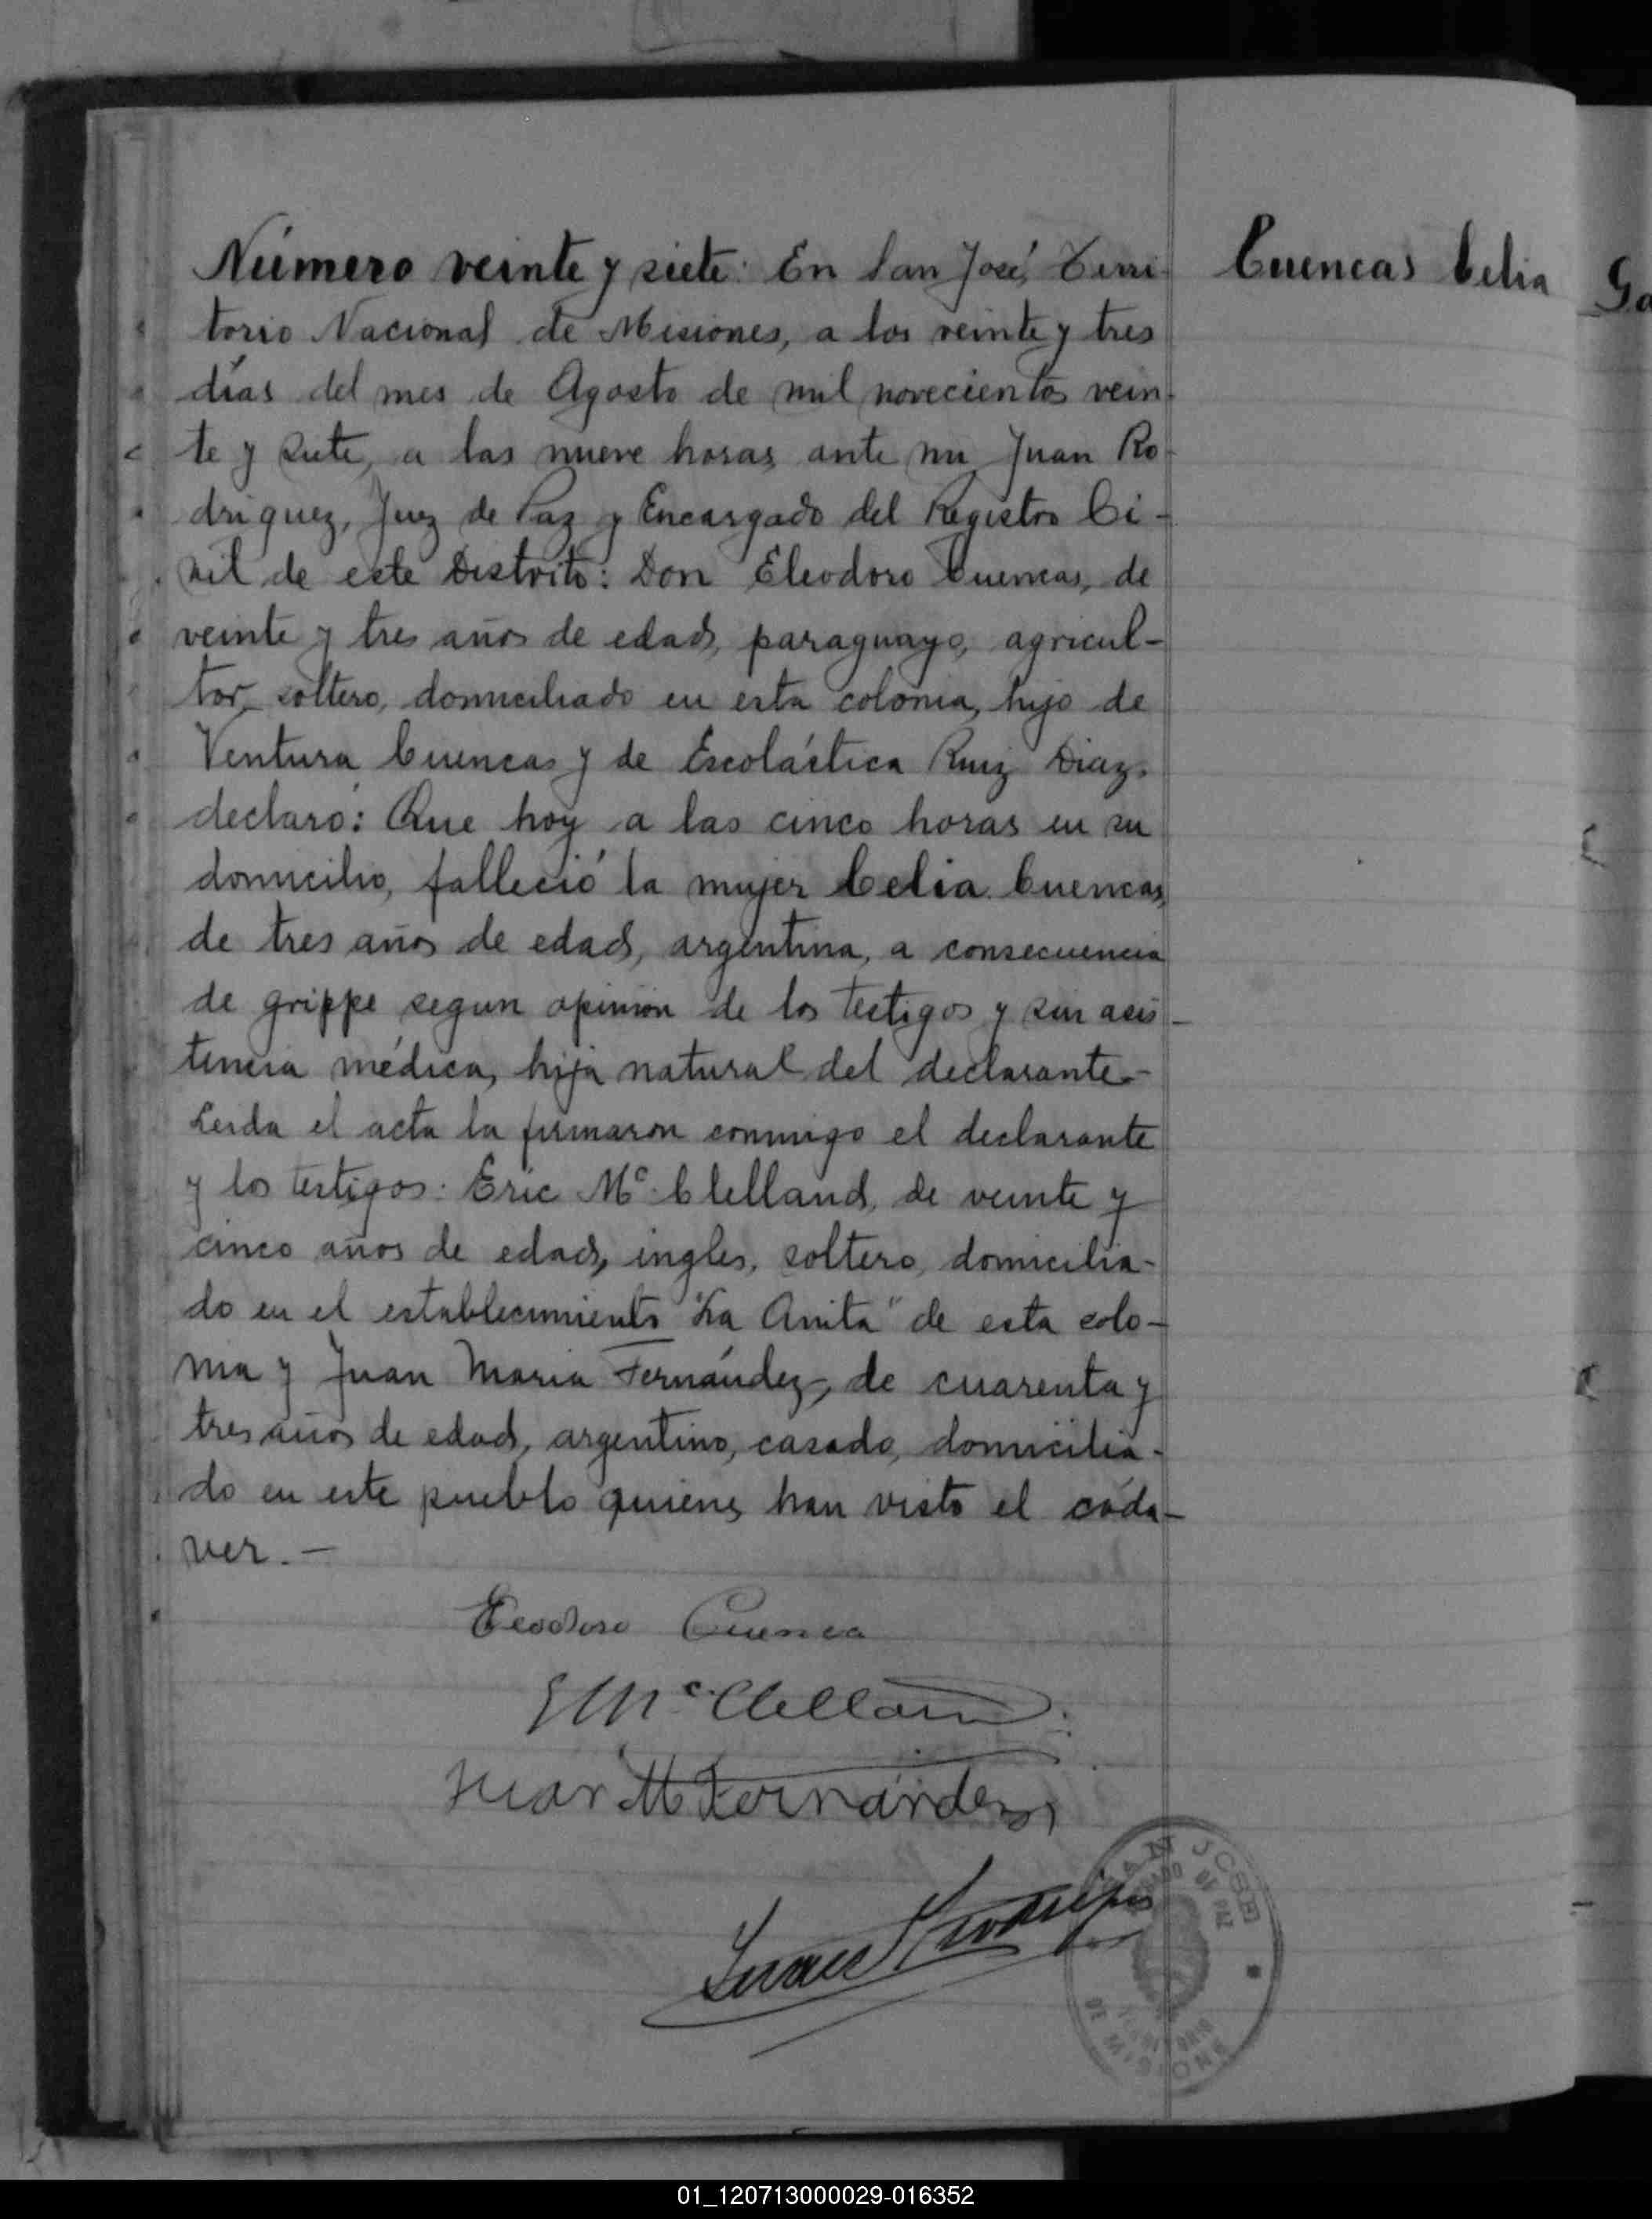 Número veinte y siete: En San José, Terri-
torio Nacional de Misiones, a los veinte y tres
días del mes de Agosto de mil novecientos vein-
te y siete, a las nueve horas, ante mi Juan Ro-
driguez, Juez de Paz y Encargado del Registro Ci-
vil de este Distrito: Don Eleodoro Cuencas, de
veinte y tres años de edad, paraguayo, agricul-
tor, soltero, domiciliado en esta colonia, hijo de
Ventura Cuencas y de Escolástica Ruiz Diaz,
declaró: Que hoy a las cinco horas en su
domicilio, falleció la mujer Celia Cuencas,
de tres años de edad, argentina, a consecuencia
de grippe segun opinión de los testigos y sin asis-
tencia médica, hija natural del declarante.-
Leida el acta la firmaron conmigo el declarante
y los testigos: Eric Mc. Clelland, de veinte y
cinco años de edad, ingles, soltero, domicilia-
do en el establecimiento "La Anita" de esta colo-
nia y Juan Maria Fernández, de cuarenta y
tres años de edad, argentino, casado, domicilia-
do en este pueblo quienes han visto el cada-
ver.-
Cuencas Celia
Eeodoro Cuenca
E Mc Clelland
Juan M Fernández
Juan Rodriguez
SAN JOSE
JUZGADO DE PAZ
TERRITORIO
DE MISIONES
01_120713000029-016352